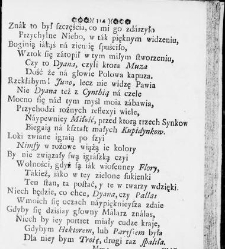 114
Znák to był szczęścia, co mi go zdárzyłá
Przychylne Niebo, w ták pięknym widzeniu,
Boginią iákąś ná zięmię spuściło,
Wzrok się zátopił w tym miłym stworzeniu,
Czy to Dyana, czyli ktora Muza
Dość że ná głowie Połowa kápuza.
Rzekłbym! Juno, lecz nie widzę Páwia
Nie Dyana też z Cynthią ná czele
Mocno się nád tym myśl moiá zábáwia,
Przychodzi rożnych reflexyi wiele,
Náypewniey Miłość, przed ktorą trzech Synkow
Biegáią ná kształt máłych Kupidynkow.
Loki zwiáne igráią po szyi
Nimffy w rożowe wiążą ie kolory
By nie związáły swą igrászką czyi
Wolności, gdyż są iák wiosenney Flory,
Tákież, iáko w tey zielone sukienki
Ten stan, tá postáć, y te w twarzy wdzięki.
Niech będzie, co chce, Dyana, czy Pallas
W moich się uczách náypięknieysza zdáie
Gdyby się dzisiay głowny Málarz ználaz,
Niech by iey portret miáły cudze kráie,
Gdybym Hektorem, lub Parysem byłá
Dla niey bym Troię, drugi raz spalilá.